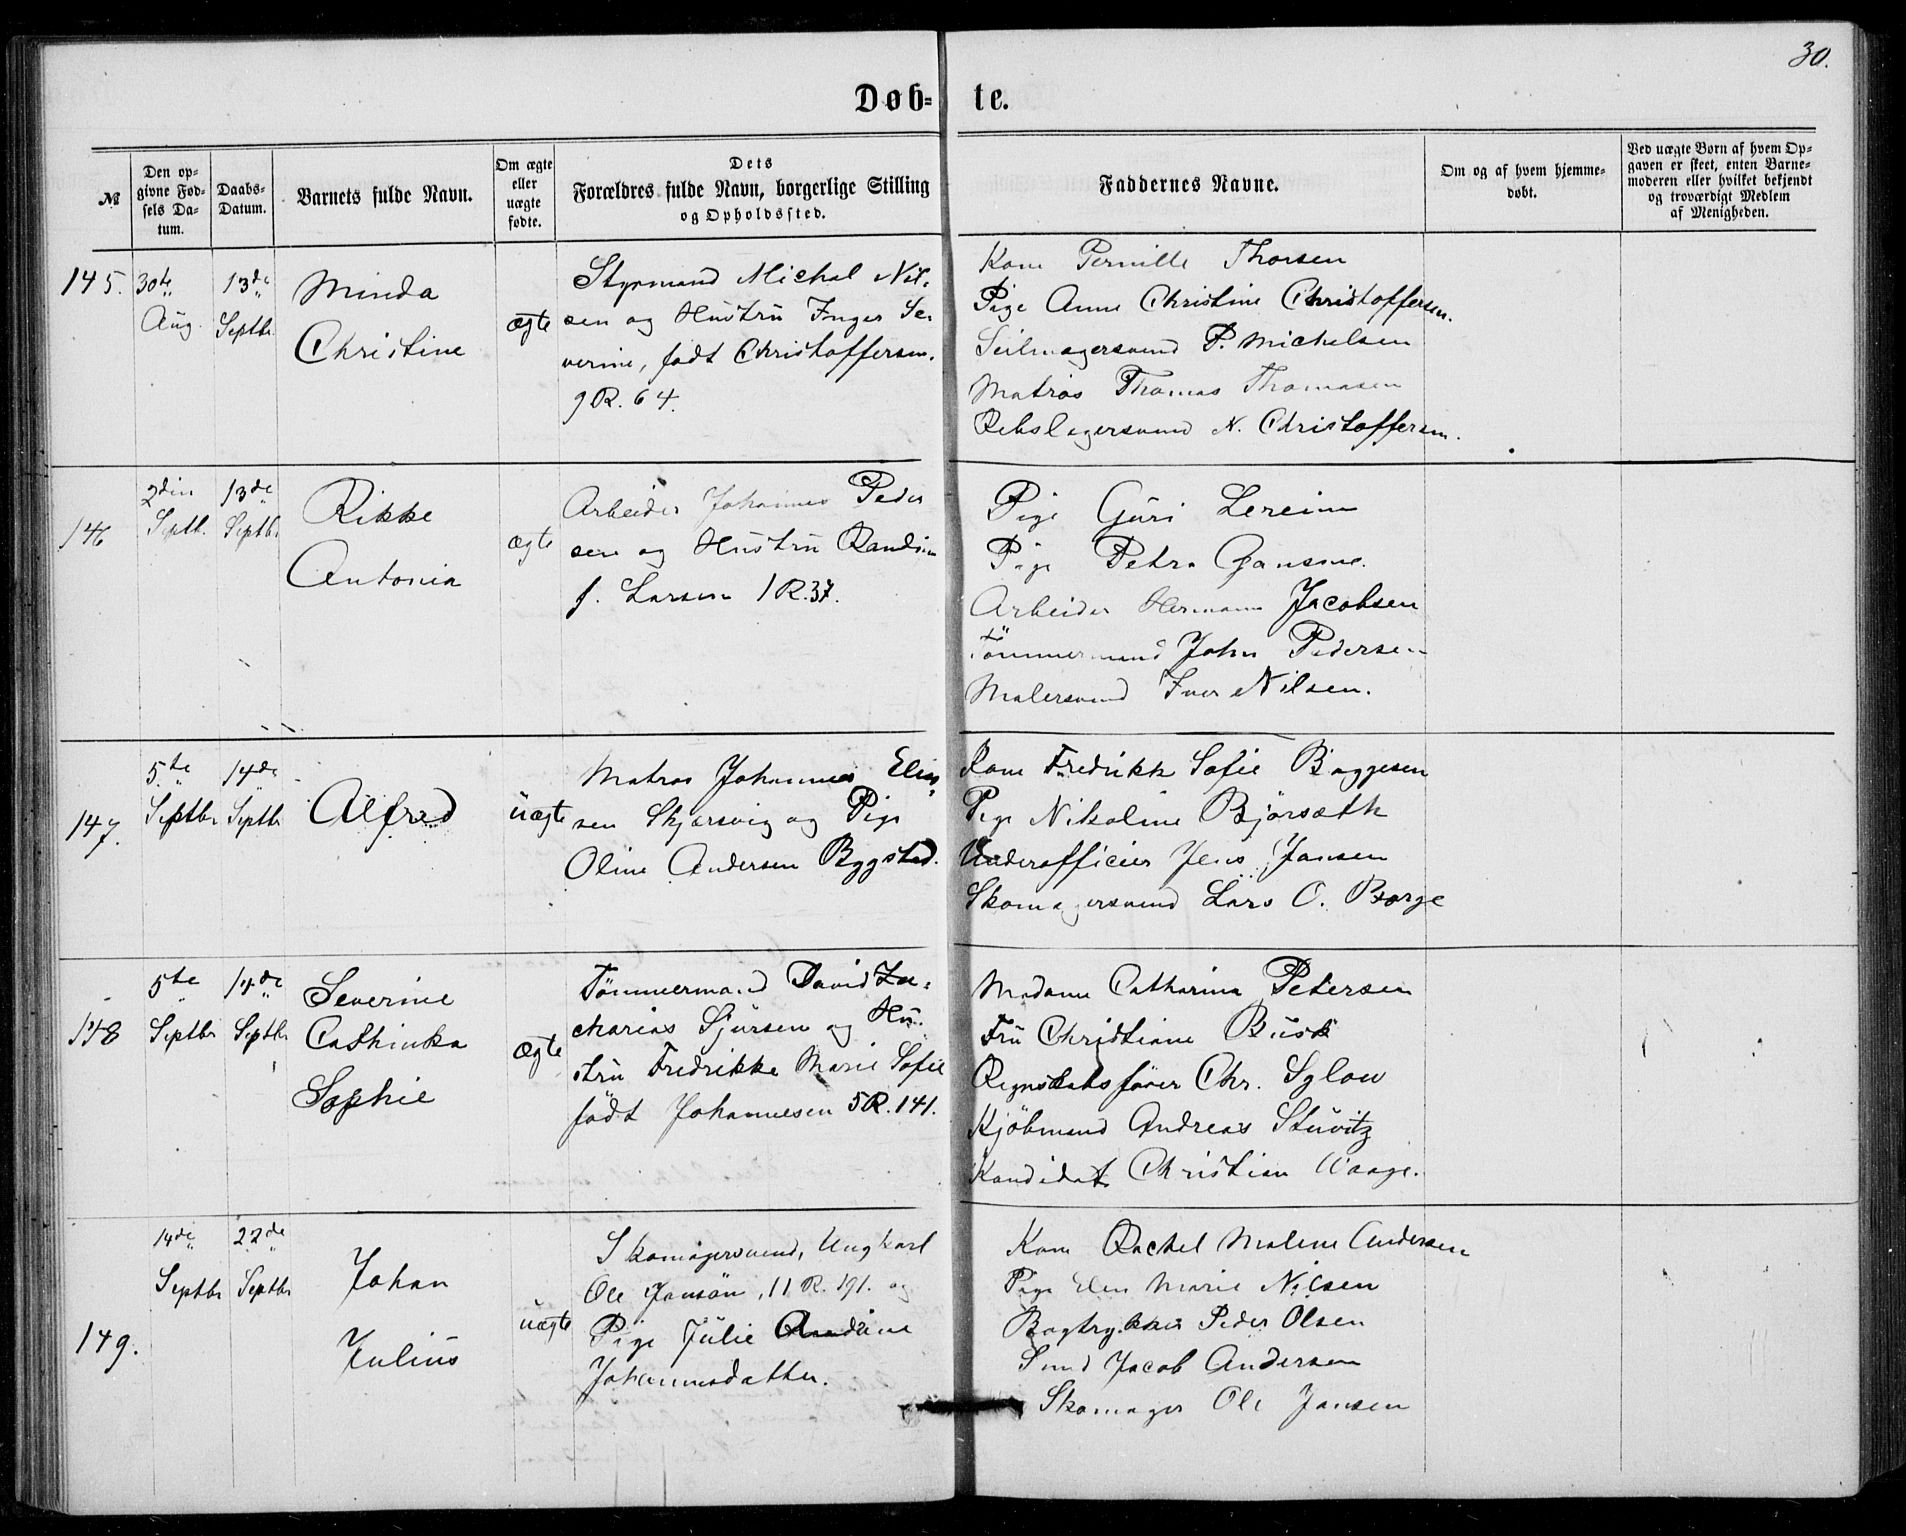 30.
Døb- te.
№
Den op-
givne Fød-
sels Da-
tum.
Daabs-
Datum.
Barnets fulde Navn.
Om ægte
eller
uægte
fødte.
Dets
Forældres fulde Navn, borgerlige Stilling
og Opholdssted.
Faddernes Navne.
Om og af hvem hjemme-
døbt.
Ved uægte Børn af hvem Op-
gaven er skeet, enten Barne-
moderen eller hvilket bekjendt
og troværdigt Medlem
af Menigheden.
145.
30te
Aug.
13de
Septbr.
Minda
Christine
ægte
Styrmand Michal Nil-
sen og Hustru Inger Se-
verine, født Christoffersen.
9 R. 64.
Kone Pernille Thorsen
Pige Anne Christine Christoffersen.
Seilmagersvend P. Michelsen
Matros Thomas Thomasen
Rebslagersvend N. Christoffersen.
146
2den
Septb.
13de
Septbr
Rikke
Antonia
ægte
Arbeider Johannes Peder
sen og Hustru Randine
f. Larsen 1 R. 37.
Pige Guri Lereim
Pige Petra
Arbeider Hermann Jacobsen
Tömmermand John Pedersen
Malersvend Iver Nilsen.
147.
5te
Septbr
14de
Septbr
Alfred
uægte
Matros Johannes Elias
sen Skjersvig og Pige
Oline Andersen Bygstad.
Kone Fredrikk Sofie Baggesen
Pige Nikoline Björsæth
Underofficier Jens Jansen
Skomagersvend Lars O. Borge
148
5te
Septbr
14de
Septbr
Severine
Cathinka
Sophie
ægte
Tömmermand David Za-
charias Sjursen og Hu-
stru Fredrikke Marie Sofie
födt Johannesen 5 R. 141.
Madame Catharina Petersen
Fru Christiane Busk
Regnskabsförer Chr. Sylow
Kjöbmand Andreas Stuwitz
Kandidat Christian Waage.
149.
14de
Septbr
22de
Septbr
Johan
Julius
uægte
Skomagersvend, Ungkarl
Ole Jansön, 11 R. 191. og
Pige Julie Andrine
Johannesdatter.
Kone Rachel Malene Andersen
Pige Elen Marie Nilsen
Bogtrykker Peder Olsen
Svend Jacob Andersen
Skomager Ole Jansen